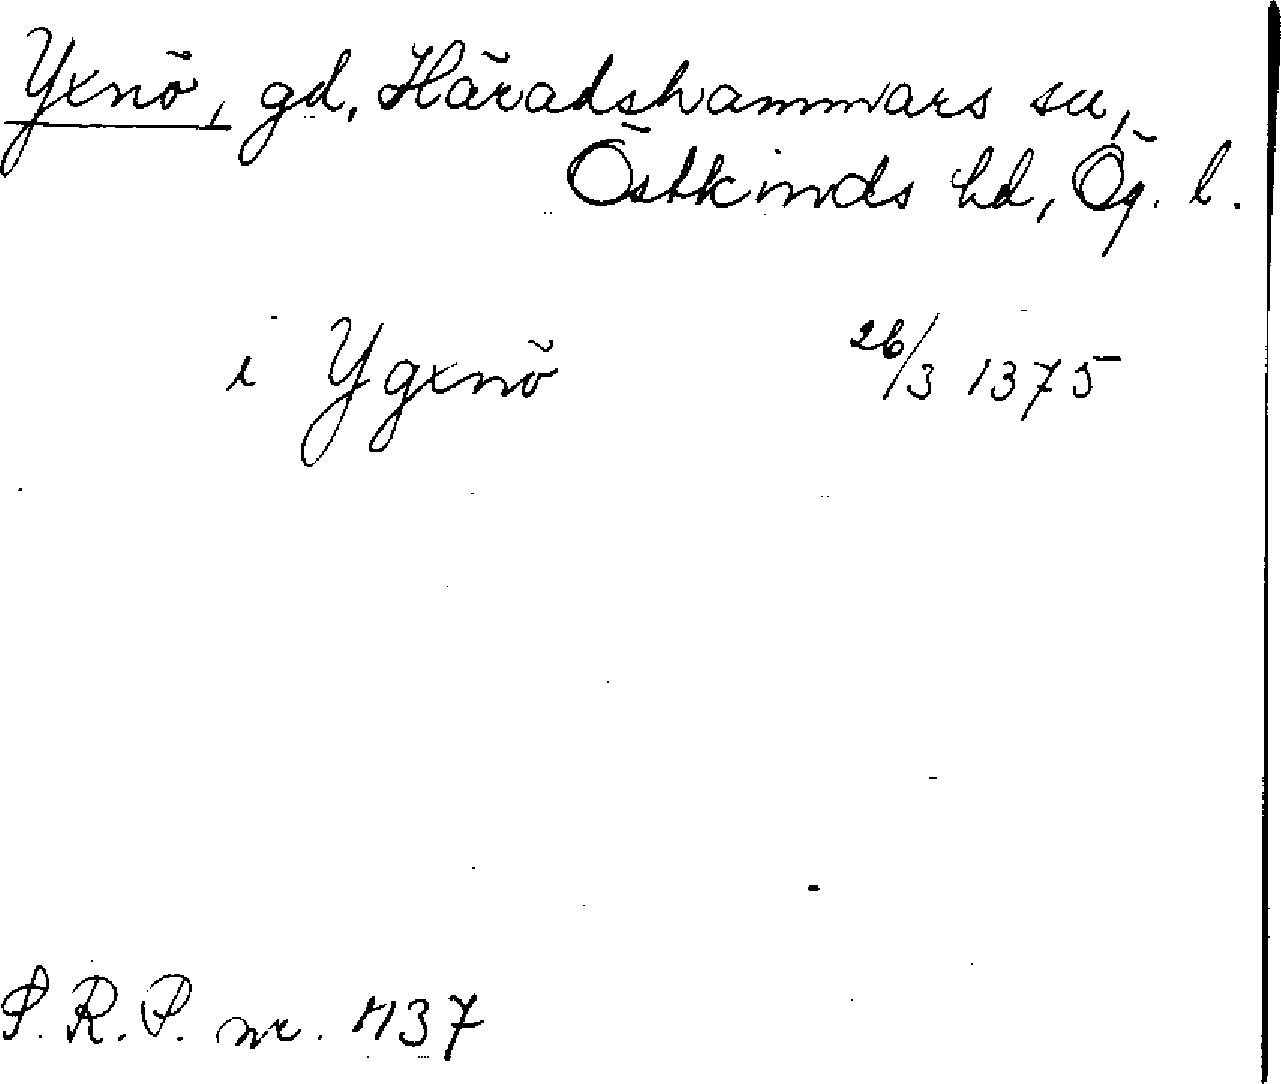 Yxnö, gd, Häradshammars sn,
Östkinds hd, Ög. l.
i Ygxnö 26/3 1375
S.R.P. nr. 1137